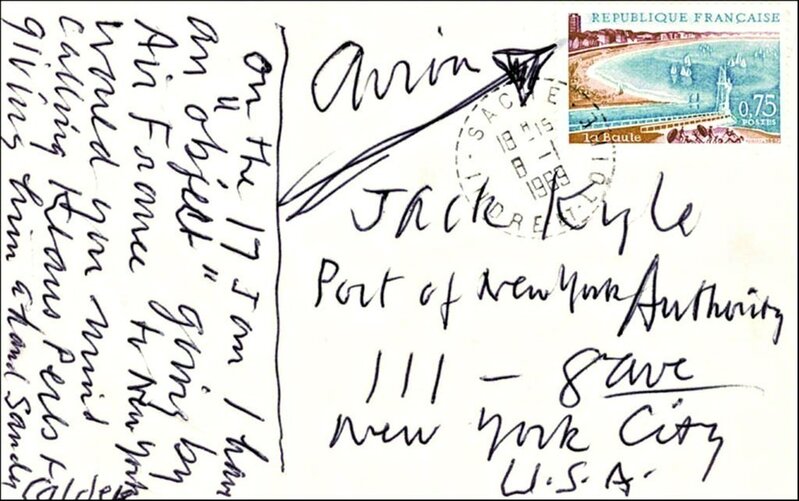 on the 17 Jan I have
an "object" going by
Air France to New York
Would you mind
calling Klaus Perls &
giving him a hand Sandy
Calder
avion
REPUBLIQUE FRANÇAISE
0,75
POSTES
La Baule
SACHE
18 H 15
8 - 1
1969
INDRE-ET-LOIRE
Jack Kyle
Port of New York Authority
111 - 8 ave
New York City
U.S.A.